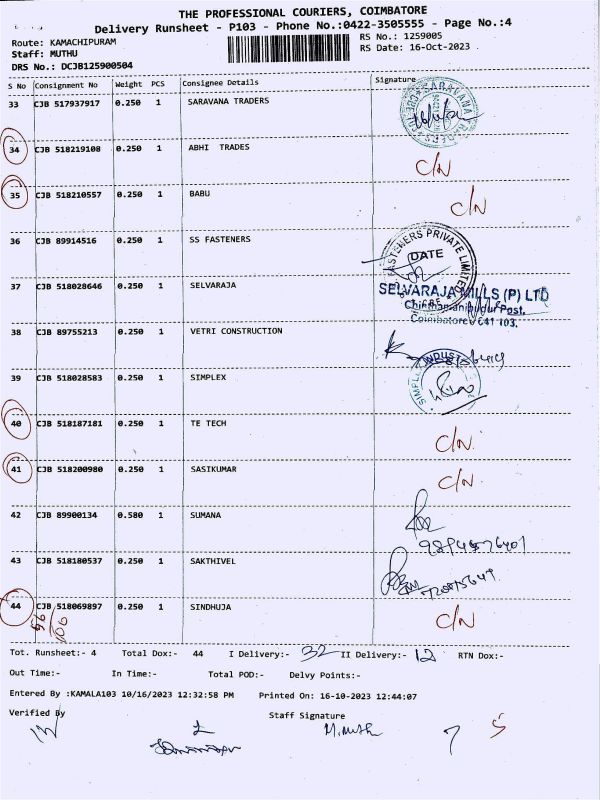 THE PROFESSIONAL COURIERS, COIMBATORE
Delivery Runsheet - P103 - Phone No.:0422-3505555 - Page No.:4
Route: KAMACHIPURAM RS No.: 1259005
Staff: MUTHU RS Date: 16-Oct-2023
DRS No.: DCJB125900504
S No Consignment No Weight PCS Consignee Details Signature
33 CJB 517937917 0.250 1 SARAVANA TRADERS
34 CJB 518219108 0.250 1 ABHI TRADES C/N
35 CJB 518210557 0.250 1 BABU C/N
36 CJB 89914516 0.250 1 SS FASTENERS
FASTENERS PRIVATE LIMITED
DATE
37 CJB 518028646 0.250 1 SELVARAJA
SELVARAJA MILLS (P) LTD
Coimbatore - 641 103.
38 CJB 89755213 0.250 1 VETRI CONSTRUCTION
39 CJB 518028583 0.250 1 SIMPLEX
40 CJB 518187181 0.250 1 TE TECH C/N
41 CJB 518200980 0.250 1 SASIKUMAR C/N
42 CJB 89900134 0.580 1 SUMANA
43 CJB 518180537 0.250 1 SAKTHIVEL
44 CJB 518069897 0.250 1 SINDHUJA C/N
Tot. Runsheet:- 4 Total Dox:- 44 I Delivery:- 32 II Delivery:- 12 RTN Dox:-
Out Time:- In Time:- Total POD:- Delvy Points:-
Entered By :KAMALA103 10/16/2023 12:32:58 PM Printed On: 16-10-2023 12:44:07
Verified By Staff Signature
M.Muth 7 5